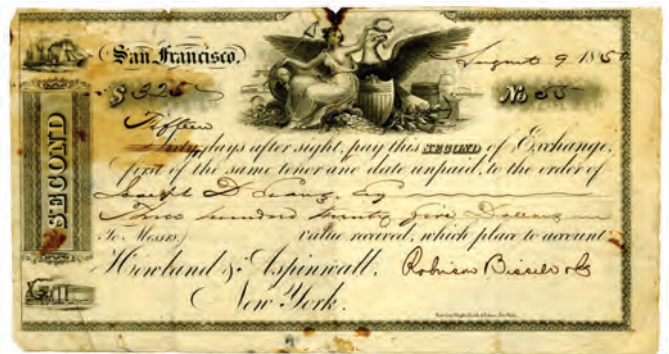 San Francisco, August 9 1850
$ 325 No 55
Fifteen
Sixty days after sight, pay this SECOND of Exchange,
first of the same tenor and date unpaid, to the order of
Joseph D
Three hundred twenty five Dollars
To Messrs. value received, which place to account
Howland & Aspinwall. Robinson Bissell & Co
New York.
SECOND